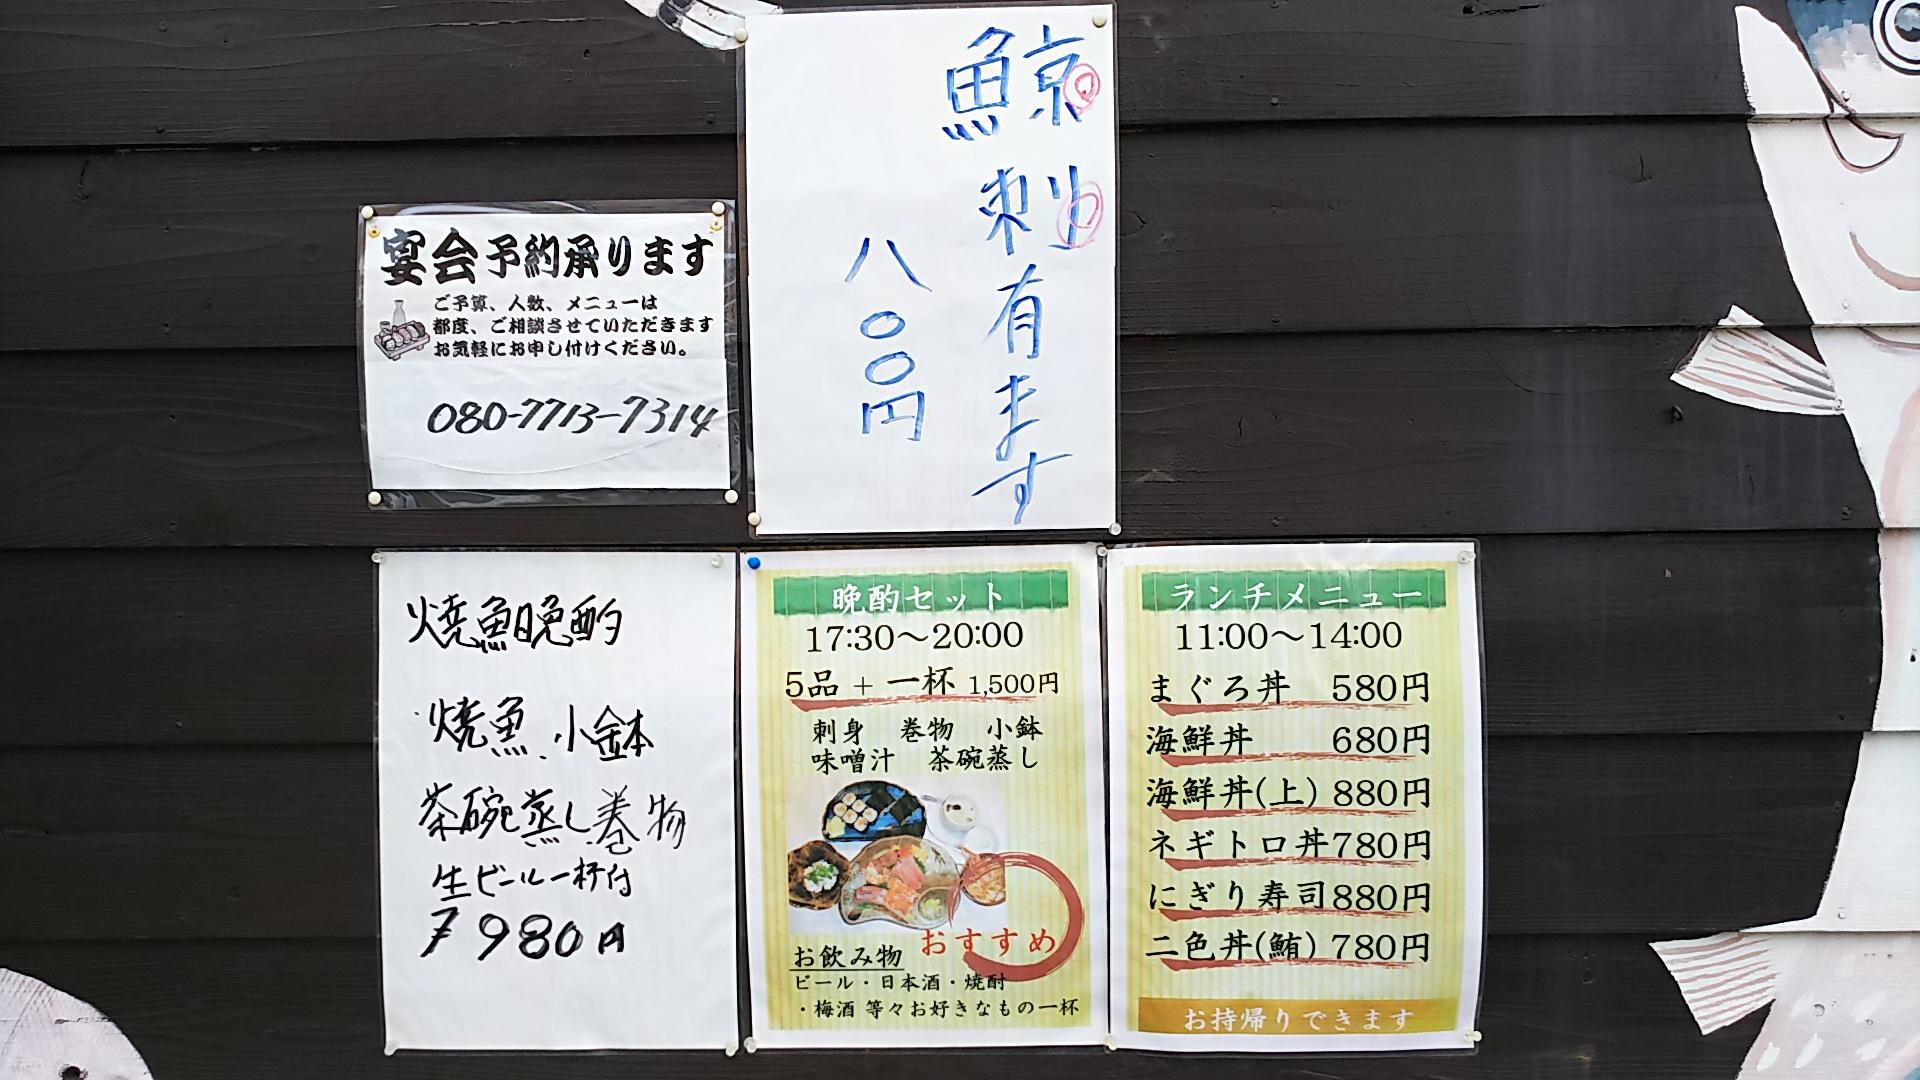 鯨刺有ます
八〇〇円
宴会予約承ります
ご予算、人数、メニューは
都度、ご相談させていただきます
お気軽にお申し付けください。
080-7713-7314
焼魚晩酌
焼魚、小鉢
茶碗蒸し、巻物
生ビール一杯付
¥980円
晩酌セット
17:30～20:00
5品 + 一杯 1,500円
刺身 巻物 小鉢
味噌汁 茶碗蒸し
おすすめ
お飲み物
ビール・日本酒・焼酎
・梅酒 等々お好きなもの一杯
ランチメニュー
11:00～14:00
まぐろ丼 580円
海鮮丼 680円
海鮮丼(上) 880円
ネギトロ丼780円
にぎり寿司880円
二色丼(鮪) 780円
お持帰りできます